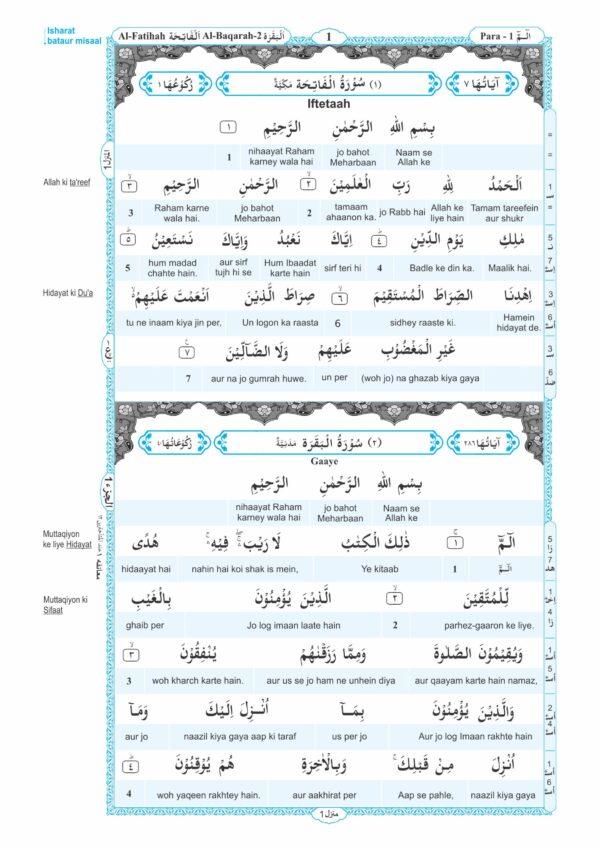 Isharat
bataur misaal
Al-Fatihah اَلْفَاتِحَة Al-Baqarah-2 اَلْبَقَرَة
1
Para - 1 الٓـمّٓ
رُكُوْعُهَا ١
(١) سُوْرَةُ الْفَاتِحَة مَكِّيَّةٌ
اٰيَاتُهَا ٧
Iftetaah
بِسْمِ اللّٰهِ الرَّحْمٰنِ الرَّحِيْمِ ١
Naam se Allah ke
jo bahot Meharbaan
nihaayat Raham karney wala hai
1
Allah ki ta'reef
اَلْحَمْدُ لِلّٰهِ رَبِّ الْعٰلَمِيْنَ ٢ الرَّحْمٰنِ الرَّحِيْمِ ٣
Tamam tareefein aur shukr
Allah ke liye hain
jo Rabb hai
tamaam ahaanon ka.
2
jo bahot Meharbaan
Raham karne wala hai.
3
مٰلِكِ يَوْمِ الدِّيْنِ ٤ اِيَّاكَ نَعْبُدُ وَاِيَّاكَ نَسْتَعِيْنُ ٥
Maalik hai.
Badle ke din ka.
4
sirf teri hi
Hum Ibaadat karte hain
aur sirf tujh hi se
hum madad chahte hain.
5
Hidayat ki Du'a
اِهْدِنَا الصِّرَاطَ الْمُسْتَقِيْمَ ٦ صِرَاطَ الَّذِيْنَ اَنْعَمْتَ عَلَيْهِمْ
Hamein hidayat de.
sidhey raaste ki.
6
Un logon ka raasta
tu ne inaam kiya jin per,
غَيْرِ الْمَغْضُوْبِ عَلَيْهِمْ وَلَا الضَّآلِّيْنَ ٧
(woh jo) na ghazab kiya gaya
un per
aur na jo gumrah huwe.
7
رُكُوْعَاتُهَا ٤٠
(٢) سُوْرَةُ الْبَقَرَة مَدَنِيَّةٌ
اٰيَاتُهَا ٢٨٦
Gaaye
بِسْمِ اللّٰهِ الرَّحْمٰنِ الرَّحِيْمِ
Naam se Allah ke
jo bahot Meharbaan
nihaayat Raham karney wala hai
Muttaqiyon
ke liye Hidayat
الٓـمّٓ ١ ذٰلِكَ الْكِتٰبُ لَا رَيْبَ فِيْهِ هُدًى
الٓـمّٓ
1
Ye kitaab
nahin hai koi shak is mein,
hidaayat hai
Muttaqiyon ki
Sifaat
لِّلْمُتَّقِيْنَ ٢ الَّذِيْنَ يُؤْمِنُوْنَ بِالْغَيْبِ
parhez-gaaron ke liye.
2
Jo log imaan laate hain
ghaib per
وَيُقِيْمُوْنَ الصَّلٰوةَ وَمِمَّا رَزَقْنٰهُمْ يُنْفِقُوْنَ ٣
aur qaayam karte hain namaz,
aur us se jo ham ne unhein diya
woh kharch karte hain.
3
وَالَّذِيْنَ يُؤْمِنُوْنَ بِمَـآ اُنْـزِلَ اِلَيْكَ وَمَـآ
Aur jo log Imaan rakhte hain
us per jo
naazil kiya gaya aap ki taraf
aur jo
اُنْزِلَ مِنْ قَبْلِكَ وَبِالْاٰخِرَةِ هُمْ يُوْقِنُوْنَ ٤
naazil kiya gaya
Aap se pahle,
aur aakhirat per
woh yaqeen rakhtey hain.
4
منزل ١